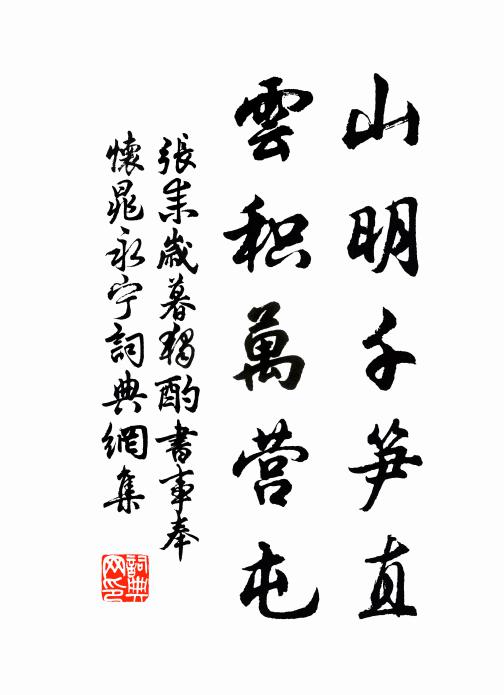 山明千笋直
雲积萬营屯
張耒歲暮獨酌書事奉
懷晁永宁詞典網集
詞典
网印